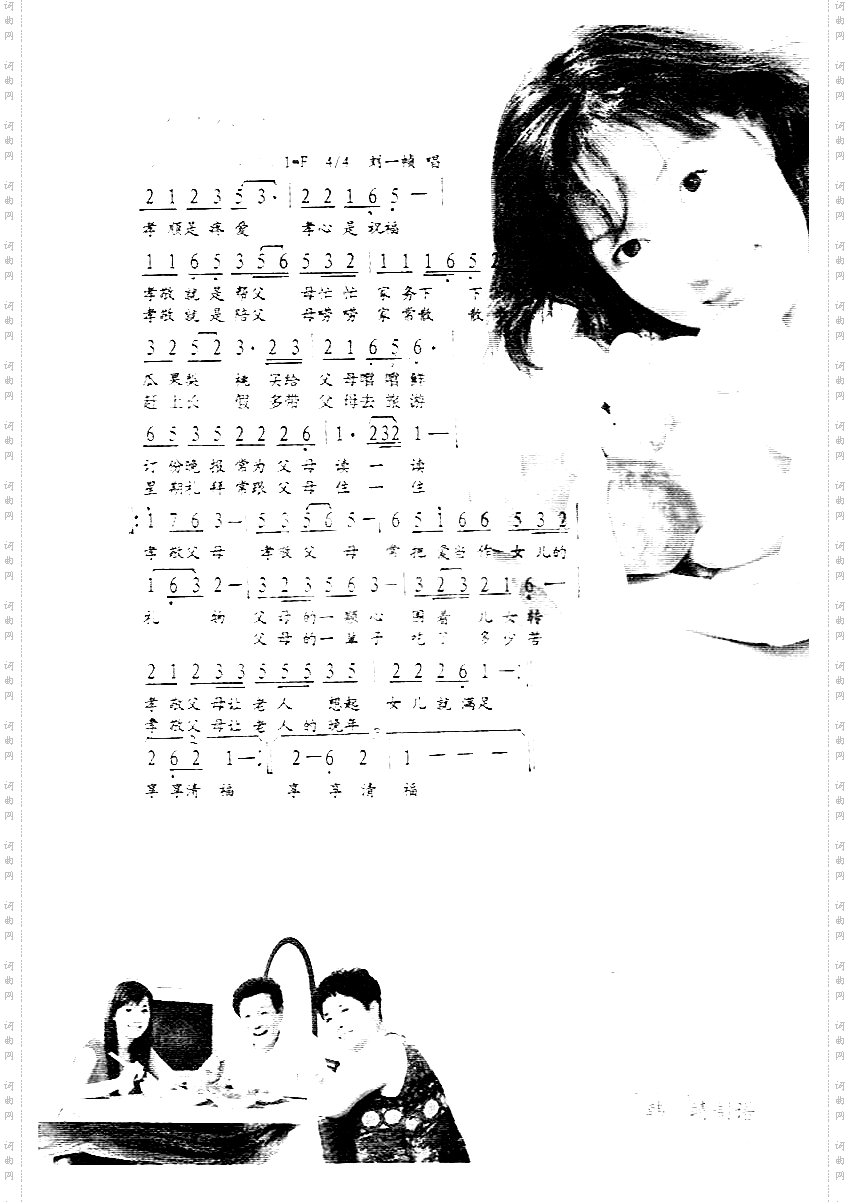 1=F 4/4 刘一帧 唱
2 1 2 3 5 3· | 2 2 1 6 5 — |
孝顺是疼爱 孝心是祝福
1 1 6 5 3 5 6 5 3 2 | 1 1 1 6 5 2
孝敬就是帮父 母忙忙 家务下 下
孝敬就是陪父 母唠唠 家常散 散
3 2 5 2 3· 2 3 | 2 1 6 5 6· |
瓜果梨 桃 买给 父母 鲜
赶上长 假 多带 父母去旅游
6 5 3 5 2 2 2 6 | 1· 2 3 2 1 — |
订份晚报常为父母读一读
星期礼拜常跟父母住一住
1 7 6 3 — | 5 3 5 6 5 — | 6 5 1 6 6 5 3 2 |
孝敬父母 孝敬父 母 常把 当作 女儿的
1 6 3 2 — | 3 2 3 5 6 3 — | 3 2 3 2 1 6 — |
礼 物 父母的一颗心 围着 儿女转
父母的一辈子 吃了 多少苦
2 1 2 3 3 5 5 5 3 5 | 2 2 2 6 1 — :|
孝敬父母让老人 想起 女儿就满足
孝敬父母让老人的晚年。
2 6 2 1 — :| 2 — 6 2 | 1 — — — |
享享清 福 享 享 清 福
词曲网